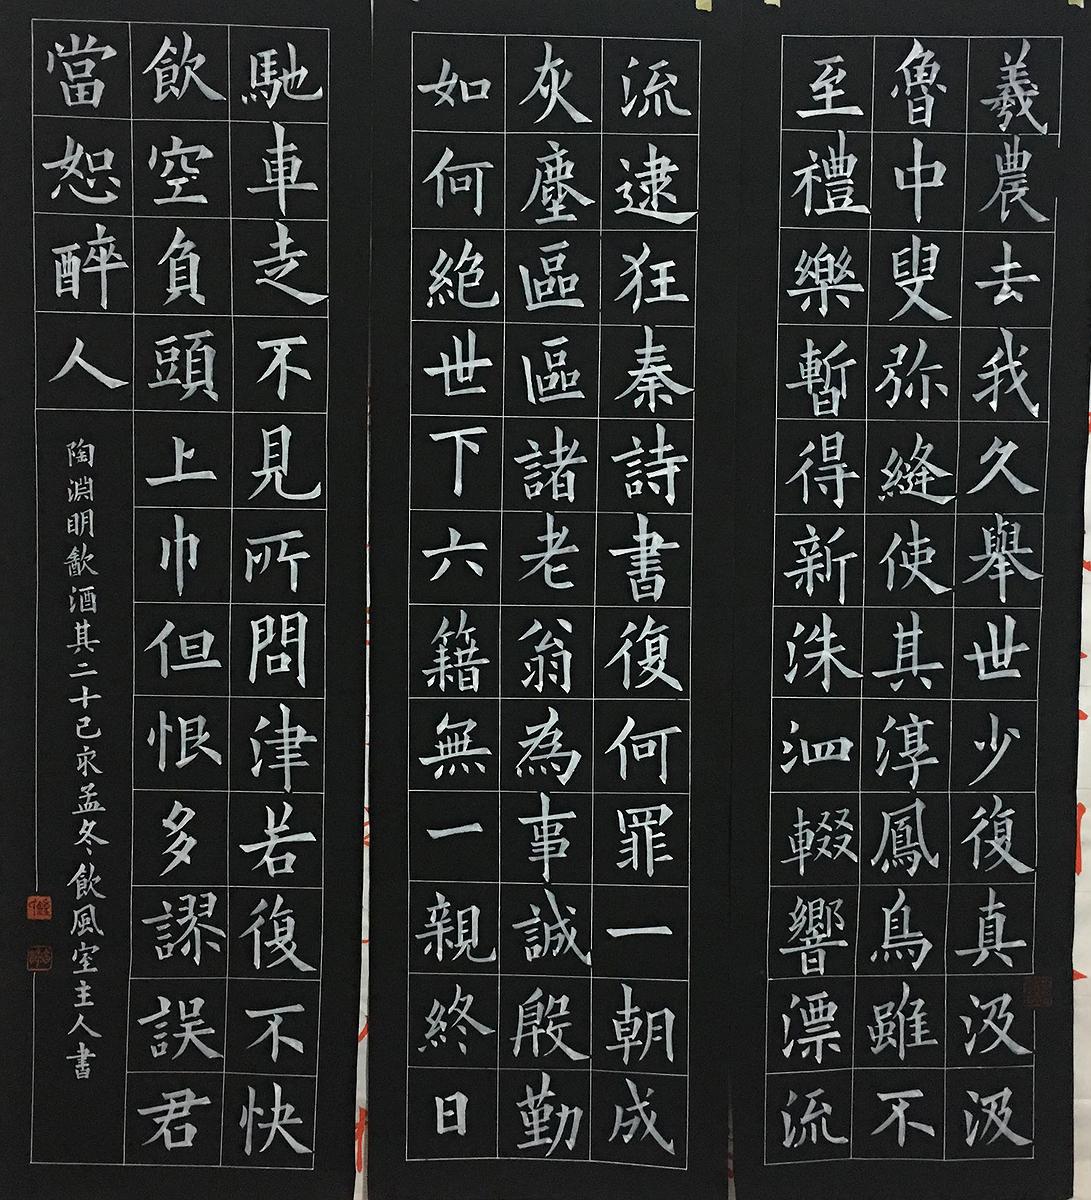 羲農去我久舉世少復真汲汲
魯中叟弥縫使其淳鳳鳥雖不
至禮樂暫得新洙泗輟響漂流
流逮狂秦詩書復何罪一朝成
灰塵區區諸老翁為事誠殷勤
如何絶世下六籍無一親終日
馳車走不見所問津若復不快
飲空負頭上巾但恨多謬誤君
當恕醉人
陶淵明㱃酒其二十己亥孟冬飲風室主人書